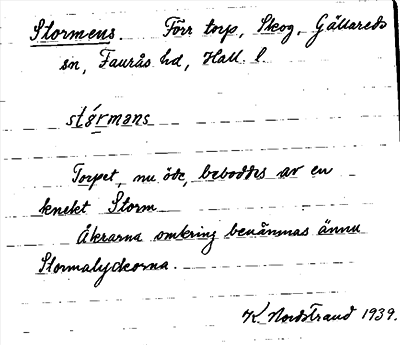 Stormens. Förr torp, Skog, Gällareds
sn, Faurås hd, Hall. l.
stǿrmans
Torpet, nu öde, beboddes av en
knekt Storm
Åkrarna omkring benämnas ännu
Stormalyckorna.
K. Nordstrand 1939.